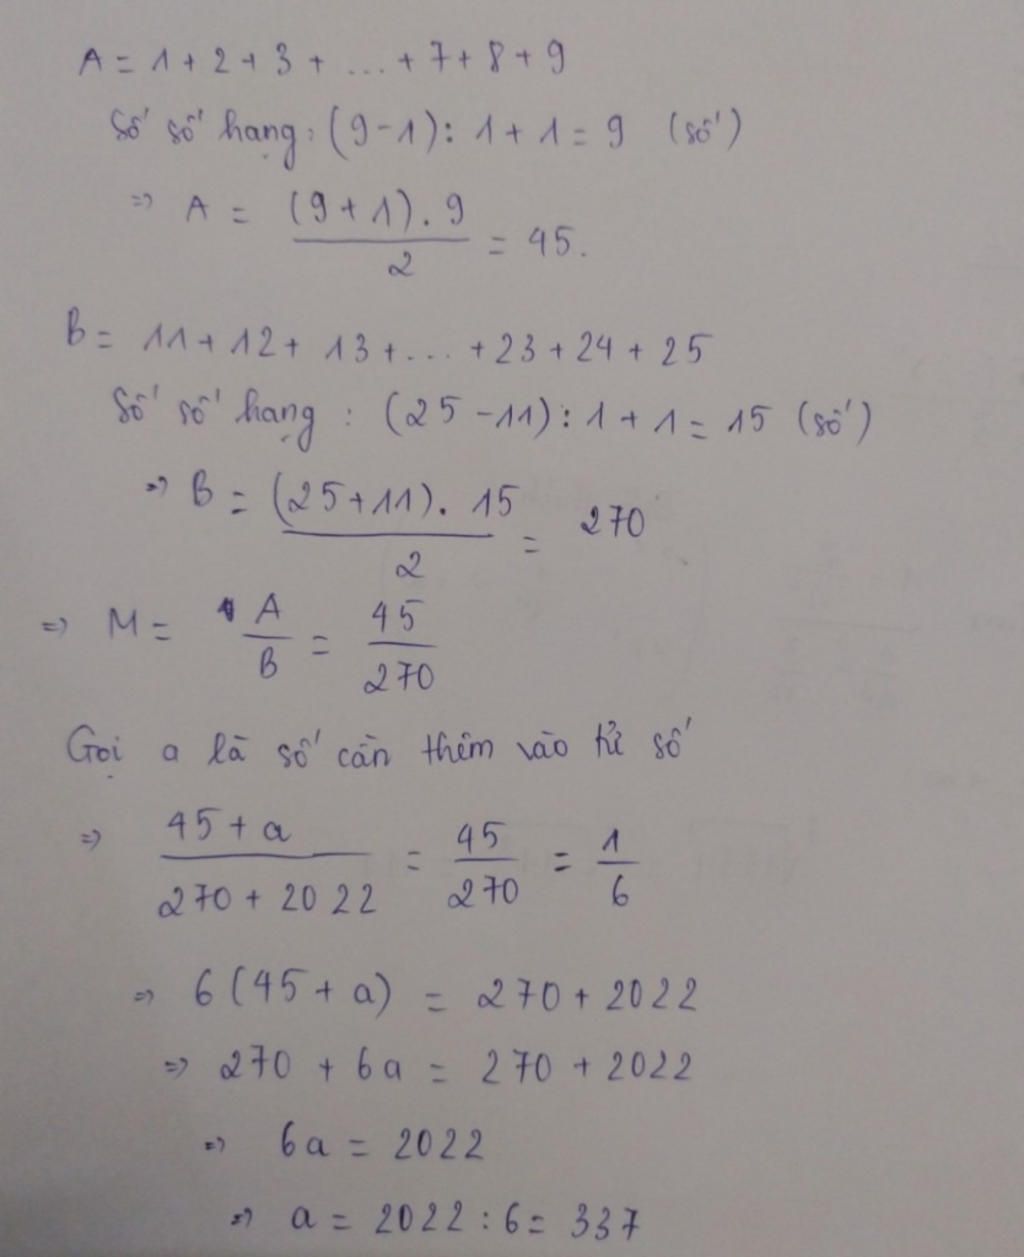 A = 1 + 2 + 3 + ... + 7 + 8 + 9
Số số hạng: (9-1): 1 + 1 = 9 (số)
=> A = (9+1).9/2 = 45.
B = 11 + 12 + 13 + ... + 23 + 24 + 25
Số số hạng: (25-11): 1 + 1 = 15 (số)
=> B = (25+11).15/2 = 270
=> M = A/B = 45/270
Gọi a là số cần thêm vào tử số
=> (45+a)/(270+2022) = 45/270 = 1/6
=> 6(45+a) = 270 + 2022
=> 270 + 6a = 270 + 2022
=> 6a = 2022
=> a = 2022 : 6 = 337